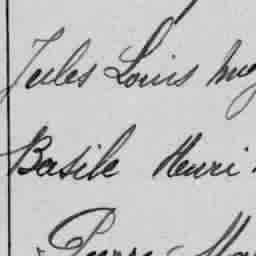 Jules Louis
Basile Henri
Pierre